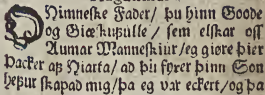 O Himneske Fader / þu hinn Goode
og Giæskufulle / sem elskar oss
Aumar Manneskiur / eg giøre þier
Þacker aß Hiarta / ad þu fyrer þinn Son
hefur skapad mig / þa eg var eckert / og þa